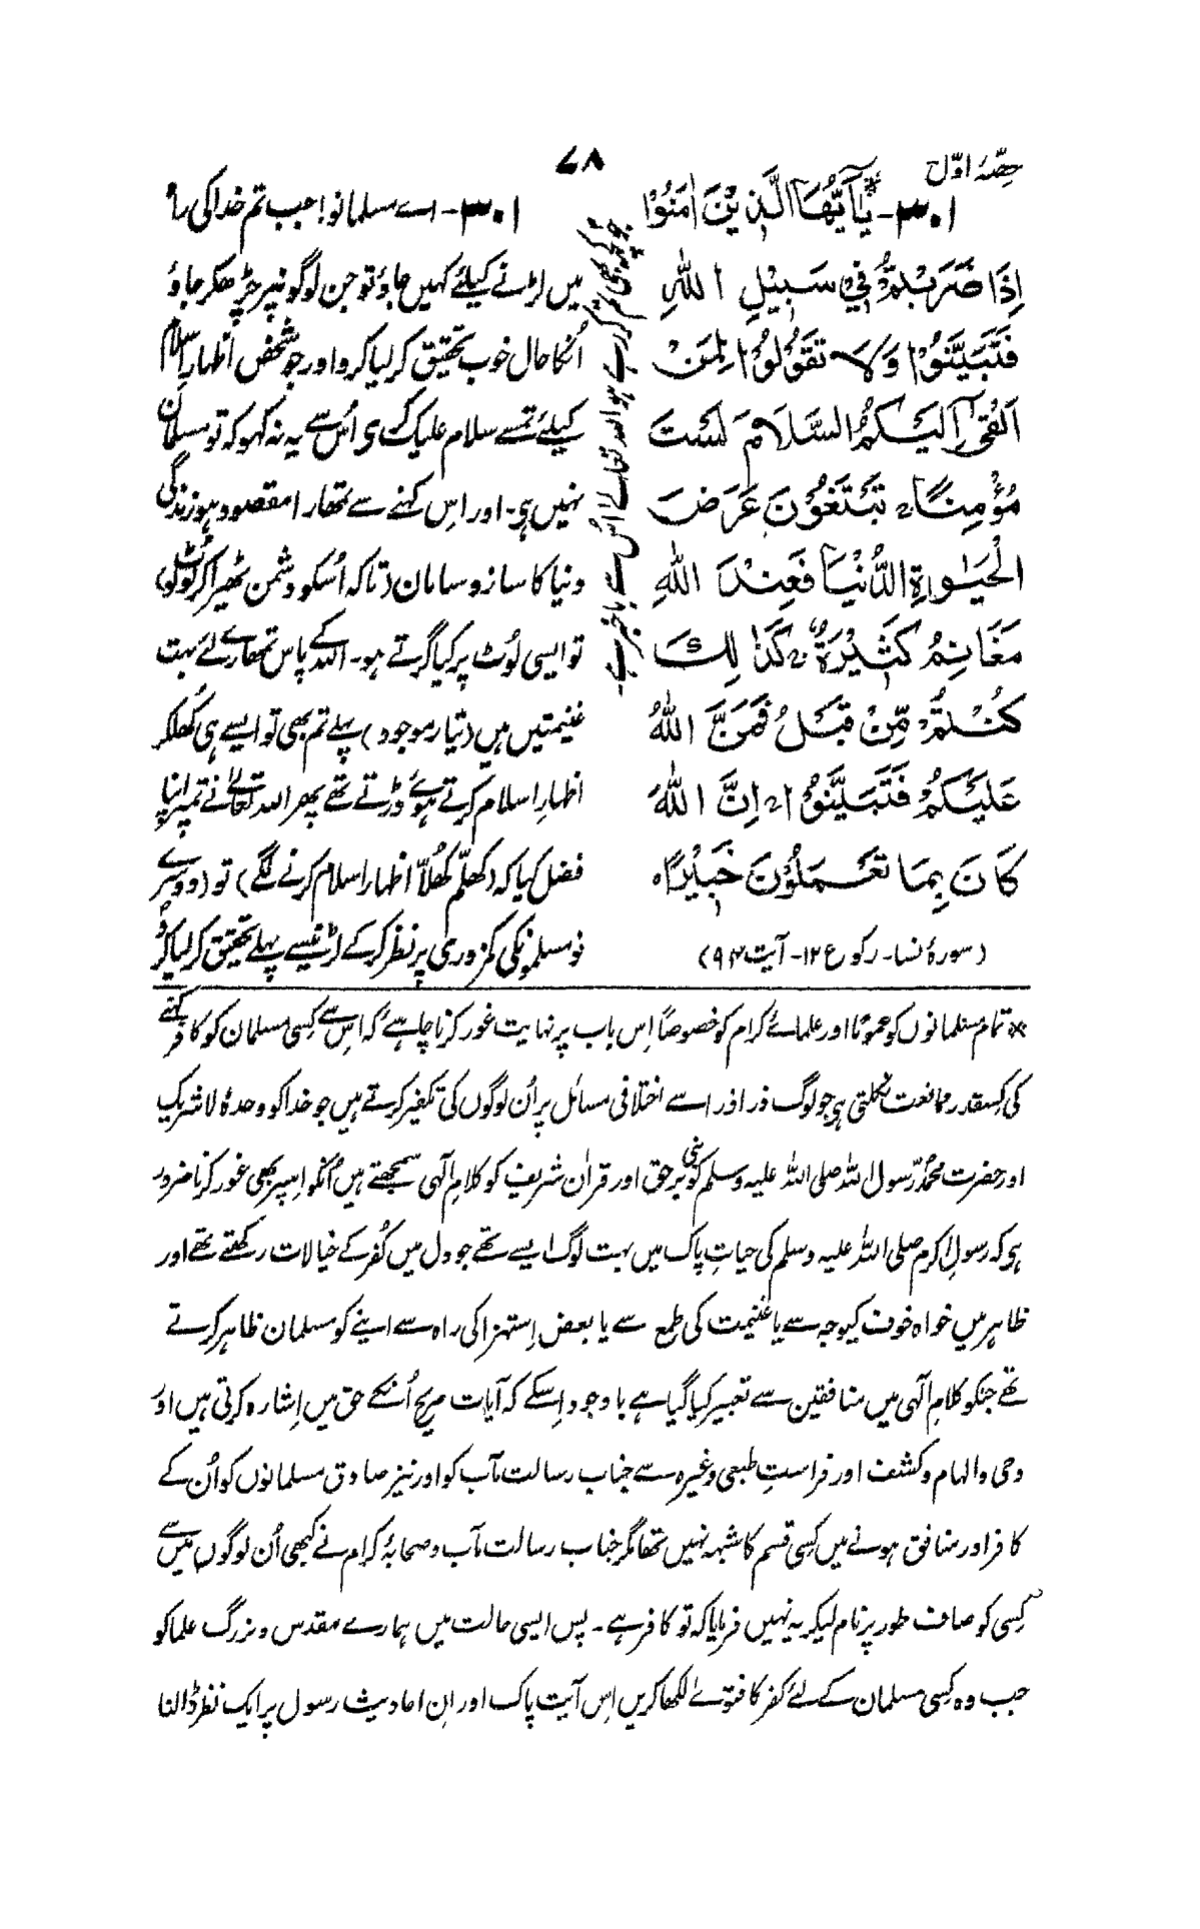 حصّۂ اوّل
۷۸
۳۰۱- *یٰۤاَیُّهَا الَّذِیْنَ اٰمَنُوْۤا
اِذَا ضَرَبْتُمْ فِیْ سَبِیْلِ اللّٰهِ
فَتَبَیَّنُوْا وَلَا تَقُوْلُوْا لِمَنْ
اَلْقٰۤی اِلَیْكُمُ السَّلَامَ لَسْتَ
مُؤْمِنًا ۚ تَبْتَغُوْنَ عَرَضَ
الْحَیٰوةِ الدُّنْیَا فَعِنْدَ اللّٰهِ
مَغَانِمُ كَثِیْرَةٌ ؕ كَذٰ لِكَ
كُنْتُمْ مِّنْ قَبْلُ فَمَنَّ اللّٰهُ
عَلَیْكُمْ فَتَبَیَّنُوْا ؕ اِنَّ اللّٰهَ
كَانَ بِمَا تَعْمَلُوْنَ خَبِیْرًا ۝
(سورۂ نساء- رکوع ۱۲- آیت ۹۴)
۳۰۱- اے مسلمانو! جب تم خدا کی راہ
میں لڑنے کیلئے کہیں جاؤ تو جن لوگونپر چڑھکر جاؤ
اُنکا حال خوب تحقیق کر لیا کرو اور جو شخص اظہارِ اسلام
کیلئے تمسے سلام علیک کرے اُس سے یہ نہ کہو کہ تو مسلمان
نہیں ہی۔ اور اِس کہنے سے تمھارا مقصود ہو زندگی
دنیا کا ساز و سامان (تاکہ اُسکو دشمن ٹھیرا کر لُوٹ لو)
تو ایسی لُوٹ پر کیا گرتے ہو۔ اللہ کے پاس تمھارے لئے بہت
غنیمتیں ہیں (تیار موجود) پہلے تم بھی تو ایسے ہی کُھلکر
اظہارِ اسلام کرتے ہوئے ڈرتے تھے پھر اللہ تعالیٰ نے تمپر اپنا
فضل کیا کہ (کھلّم کُھلّا اظہار اسلام کرنے لگے) تو (دوسرے
نومسلمونکی کمزوری پر نظر کر کے لڑنیسے پہلے تحقیق کر لیا کرو
جو کچھ بھی تم کرتے ہو اللہ تعالےٰ اُس سے باخبر ہے۔
* تمام مسلمانوں کو عموماً اور علمائے کرام کو خصوصاً اِس باب پر نہایت غور کرنا چاہئے کہ اِس سے کِسی مسلمان کو کافر کہنے
کی کِسقدر ممانعت نکلتی ہی جو لوگ ذرا ذرا سے اختلافی مسائل پر اُن لوگوں کی تکفیر کرتے ہیں جو خدا کو وحدہٗ لا شریک
اور حضرت محمدؐ رّسول اللہ صلی اللہ علیہ وسلم کو نبی برحق اور قراٰن شریف کو کلامِ الٰہی سمجھتے ہیں اُنکو اِسپر بھی غور کرنا ضرور
ہو کہ رسولِ اکرم صلی اللہ علیہ وسلم کی حیاتِ پاک میں بہت لوگ ایسے تھے جو دل میں کُفر کے خیالات رکھتے تھے اور
ظاہر میں خواہ خوف کیوجہ سے یا غنیمت کی طمع سے یا بعض اِستہزا کی راہ سے اپنے کو مسلمان ظاہر کرتے
تھے جنکو کلامِ الٰہی میں منافقین سے تعبیر کیا گیا ہے باوجود اِسکے کہ آیات صریح اُنکے حق میں اِشارہ کرتی ہیں اور
وحی و الہام و کشف اور فراستِ طبعی وغیرہ سے جناب رسالت مآب کو اور نیز صادق مسلمانوں کو اُن کے
کافر اور منافق ہونے میں کِسی قسم کا شبہہ نہیں تھا مگر جناب رسالت مآب و صحابۂ کرام نے کبھی اُن لوگوں میں سے
کِسی کو صاف طور پر نام لیکر یہ نہیں فرمایا کہ تو کافر ہے۔ پس ایسی حالت میں ہمارے مقدس و بزرگ علما کو
جب وہ کِسی مسلمان کے لئے کفر کا فتوےٰ لکھا کریں اِس آیت پاک اور اِن احادیث رسول پر ایک نظر ڈالنا